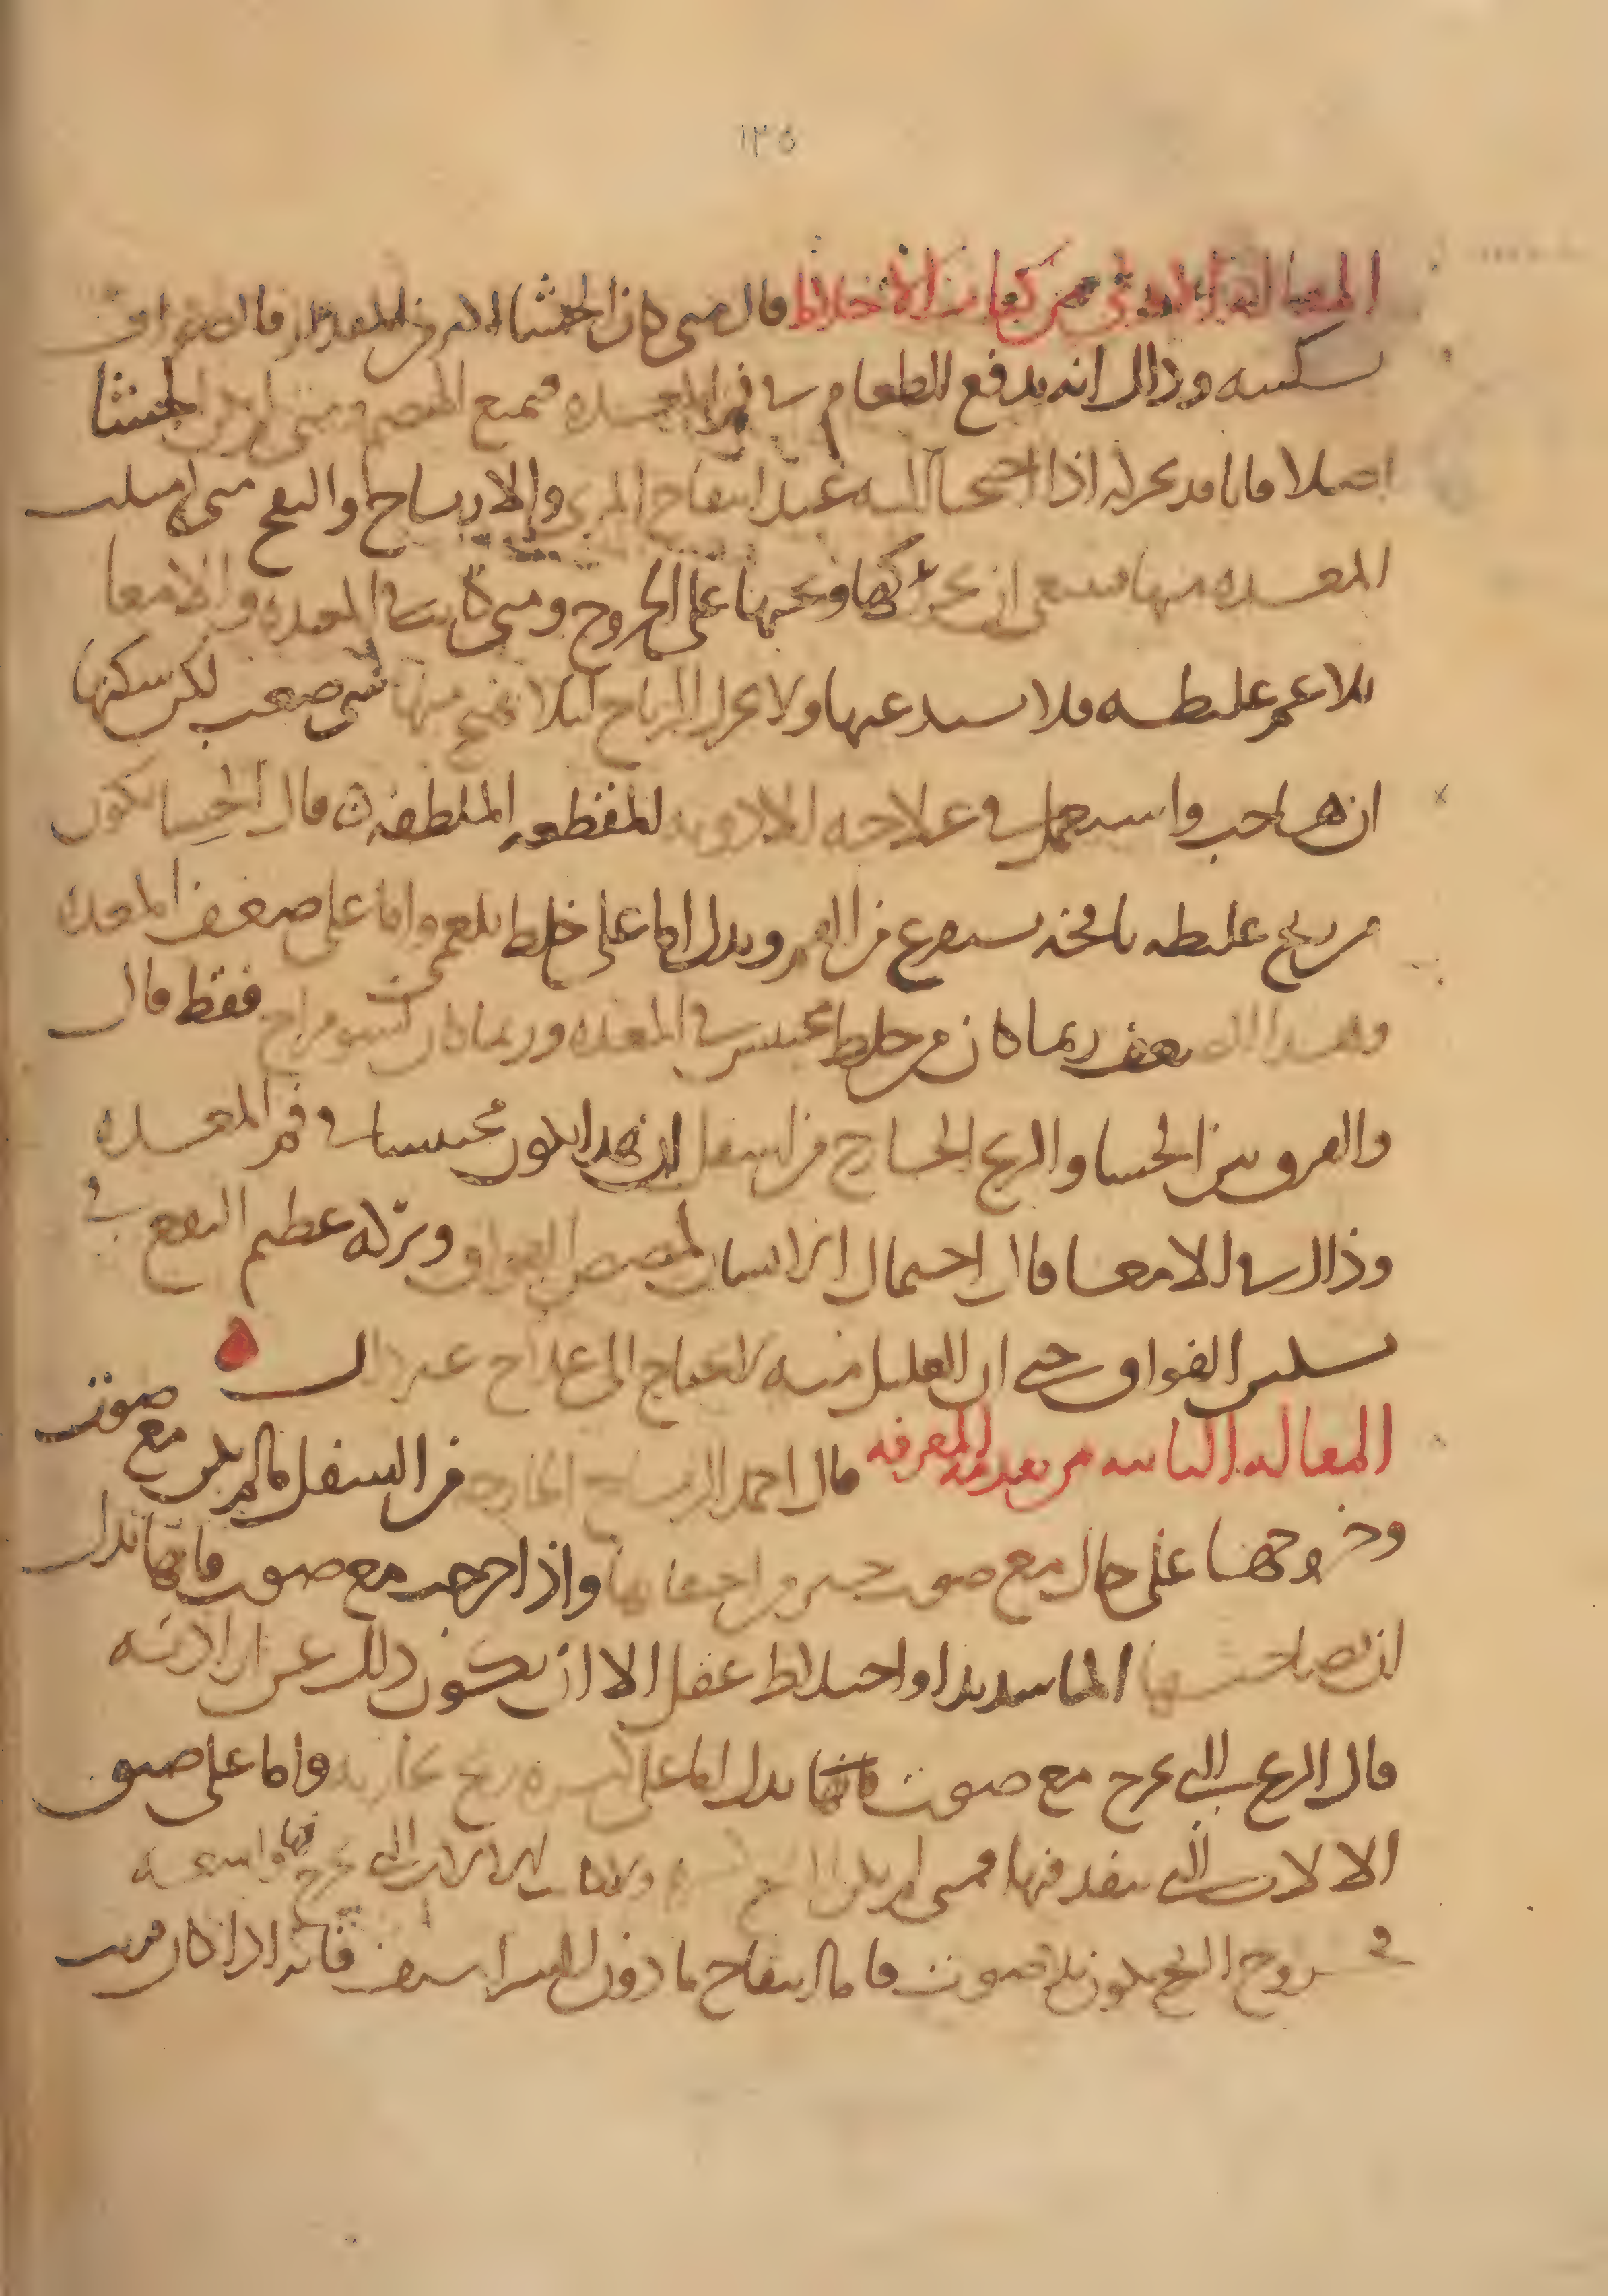 ١٣٥
المقالة الاولى من كتاب الاخلاط قال متى كان الجشا اكثر من المقدار فالصواب
تسكينه وذلك انه يدفع الطعام في فم المعدة فيمنع الهضم ومتى لم يكن الجشا
اصلا فانا قد نحركه اذا احتجنا اليه عند انتفاخ المري والارياح والنفخ متى امتلت
المعدة منها فينبغي ان نحركها ونحثها على الخروج ومتى كانت في المعدة والامعا
بلاغم غليظه فلا تستدعيها ولا تحرك الرياح ليلا تهيج منها شي صعب لكن سكنها
ان هاجت واستعمل في علاجه الادويه المقطعه الملطفه قال الجشا يكون
من ريح غليظه نافخه تستفرغ من الفم ويدل اما على خلط بلغمي واما على ضعف المعدة
وهذا الضعف ربما كان من خلط محتبس في المعدة وربما كان لسو مزاج فقط قال
والفرق بين الجشا والريح الخارج من اسفل ان هذا يكون محتبسا في فم المعدة
وذلك في الامعا قال احتمال الانسان لمضض الفواق وتركه عظيم النفع في
تسكين الفواق حتى ان القليل منه لا يحتاج الى علاج غير ذلك
المقالة الثانيه من تقدمة المعرفه قال احمد الرياح الخارجه من اسفل ما لم يكن مع صوت
وخروجها على حال مع صوت خير من احتقانها واذا خرجت مع صوت فانها تدل
ان بصاحبها الما شديدا او اختلاط عقل الا ان يكون ذلك عن ارادته
قال الريح التي تخرج مع صوت فانها تدل اما على كثرة ريح بخاريه واما على ضيق
الالات التي ينفذ فيها فمتى لم يكن الريح وكانت الالات التي تخرج فيها واسعه
فخروج الريح يكون بلا صوت قال انتفاخ ما دون الشراسيف فانه اذا كان قريب